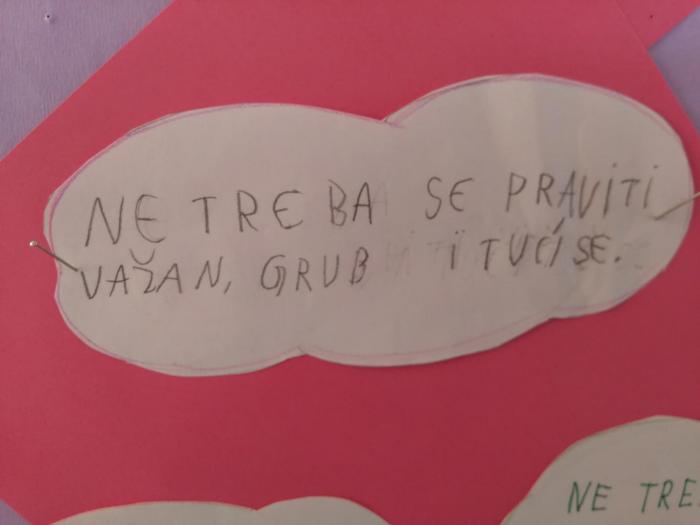 NE TREBA SE PRAVITI
VAŽAN, GRUB I TUĆI SE.
NE TRE